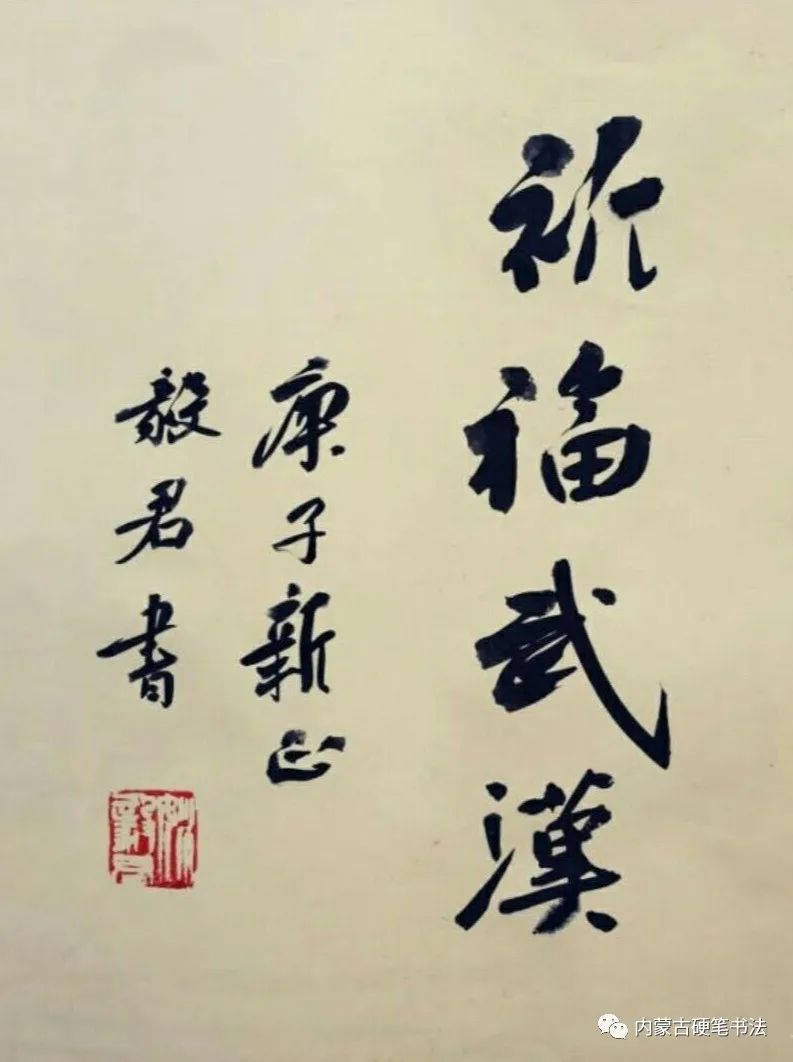 祈福武漢
庚子新正
毅君書
内蒙古硬笔书法